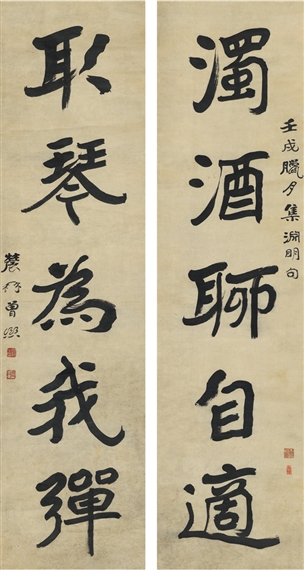 壬戌臘月集淵明句
濁酒聊自適
取琴為我彈
農髯曾熙